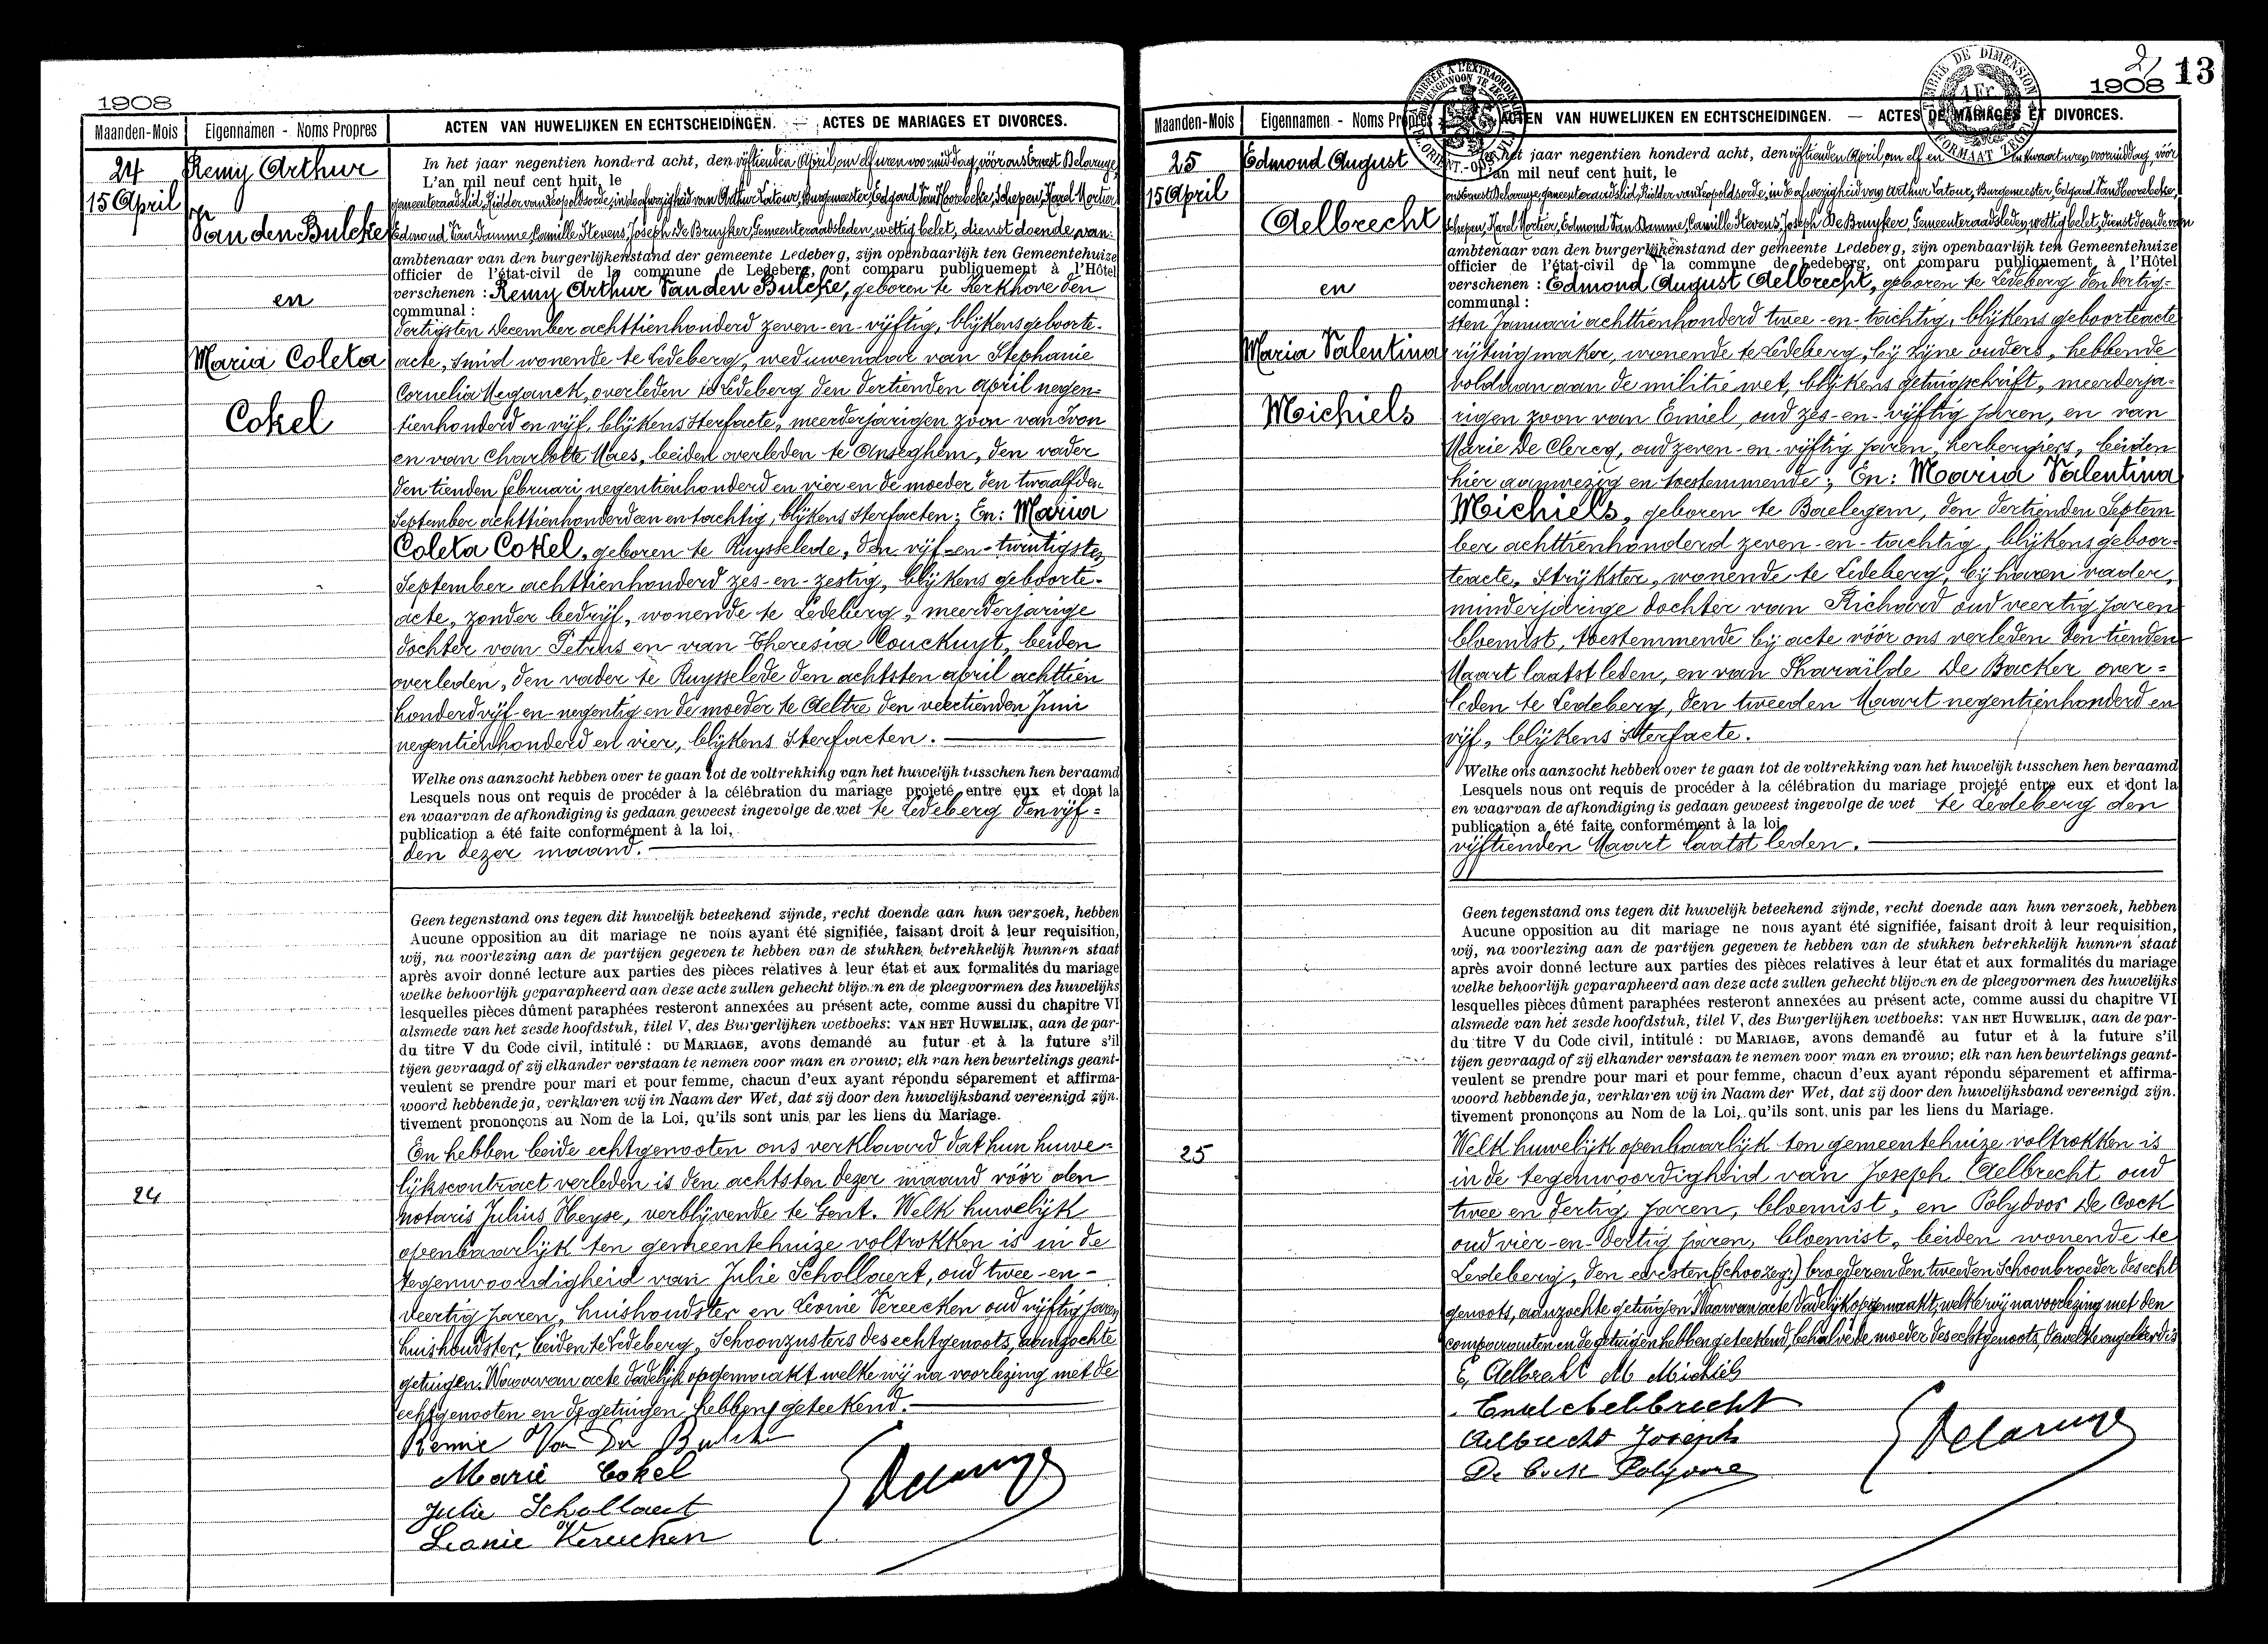 1908
Maanden-Mois
Eigennamen - Noms Propres
ACTEN VAN HUWELIJKEN EN ECHTSCHEIDINGEN. — ACTES DE MARIAGES ET DIVORCES.
24
15 April
Remy Arthur
Van den Bulcke
en
Maria Coleta
Cokel
In het jaar negentien honderd acht, den vijftienden April, om elf uren voormiddag, vóór ons Ernest Delaruye,
L'an mil neuf cent huit, le
gemeenteraadslid, Ridder van Leopoldsorde, in de afwezigheid van Arthur Latour, Burgemeester, Edgard Van Hoorebeke, Schepen, Karel Mortier
Edmond Van Damme, Camille Stevens, Joseph De Bruyker, Gemeenteraadsleden, wettig belet, dienst doende van
ambtenaar van den burgerlijkenstand der gemeente Ledeberg, zijn openbaarlijk ten Gemeentehuize
officier de l'état-civil de la commune de Ledeberg, ont comparu publiquement à l'Hôtel
verschenen : Remy Arthur Van den Bulcke, geboren te Kerkhove den
communal :
dertigsten December achttienhonderd zeven-en-vijftig, blijkens geboorte-
acte, smid wonende te Ledeberg, weduwenaar van Stephanie
Cornelia Meganck, overleden te Ledeberg den dertienden april negen=
tienhonderd en vijf, blijkens sterfacte, meerderjarigen zoon van Ivon
en van Charlotte Maes, beiden overleden te Anseghem, den vader
den tienden februari negentienhonderd en vier en de moeder den twaalfden
September achttienhonderd een en tachtig, blijkens sterfacten; En: Maria
Coleta Cokel, geboren te Ruysselede, den vijf-en-twintigsten
September achttienhonderd zes-en-zestig, blijkens geboorte-
acte, zonder bedrijf, wonende te Ledeberg, meerderjarige
dochter van Petrus en van Theresia Couckuyt, beiden
overleden, den vader te Ruysselede den achtsten april achttien
honderd vijf-en-negentig en de moeder te Aeltre den veertienden Juni
negentienhonderd en vier, blijkens sterfacten.
Welke ons aanzocht hebben over te gaan tot de voltrekking van het huwelijk tusschen hen beraamd
Lesquels nous ont requis de procéder à la célébration du mariage projeté entre eux et dont la
en waarvan de afkondiging is gedaan geweest ingevolge de wet te Ledeberg den vijf=
publication a été faite conformément à la loi,
den dezer maand.
Geen tegenstand ons tegen dit huwelijk beteekend zijnde, recht doende aan hun verzoek, hebben
Aucune opposition au dit mariage ne nous ayant été signifiée, faisant droit à leur requisition,
wij, na voorlezing aan de partijen gegeven te hebben van de stukken betrekkelijk hunnen staat
après avoir donné lecture aux parties des pièces relatives à leur état et aux formalités du mariage
welke behoorlijk geparapheerd aan deze acte zullen gehecht blijven en de plcegvormen des huwelijks
lesquelles pièces dûment paraphées resteront annexées au présent acte, comme aussi du chapitre VI
alsmede van het zesde hoofdstuk, titel V, des Burgerlijken wetboeks: VAN HET HUWELIJK, aan de par-
du titre V du Code civil, intitulé : DU MARIAGE, avons demandé au futur et à la future s'il
tijen gevraagd of zij elkander verstaan te nemen voor man en vrouw; elk van hen beurtelings geant-
veulent se prendre pour mari et pour femme, chacun d'eux ayant répondu séparement et affirma-
woord hebbende ja, verklaren wij in Naam der Wet, dat zij door den huwelijksband vereenigd zijn.
tivement prononçons au Nom de la Loi, qu'ils sont unis par les liens du Mariage.
24
En hebben beide echtgenooten ons verklaard dat hun huwe-
lijkscontract verleden is den achtsten dezer maand vóór den
notaris Julius Heyse, verblijvende te Gent. Welk huwelijk
openbaarlijk ten gemeentehuize voltrokken is in de
tegenwoordigheid van Julie Schollaert, oud twee-en-
veertig jaren, huishoudster en Leonie Vereecken oud vijftig jaren
huishoudster, beiden te Ledeberg, Schoonzusters des echtgenoots, aanzochte
getuigen. Waarvan acte dadelijk opgemaakt welke wij na voorlezing met de
echtgenooten en de getuigen hebben geteekend.
Remie Van Den Bulcke
Marie Cokel
Julie Schollaert
Leonie Vereecken
Delaruye
TIMBRE DE DIMENSION
1 Fr.
FORMAAT ZEGEL
2
1908
13
Maanden-Mois
Eigennamen - Noms Propres
ACTEN VAN HUWELIJKEN EN ECHTSCHEIDINGEN. — ACTES DE MARIAGES ET DIVORCES.
25
15 April
Edmond August
Aelbrecht
en
Maria Valentina
Michiels
het jaar negentien honderd acht, den vijftienden April, om elf en kwaart uren voormiddag, vóór
L'an mil neuf cent huit, le
ons Ernest Delaruye, gemeenteraadslid, Ridder van Leopoldsorde, in de afwezigheid van Arthur Latour, Burgemeester, Edgard Van Hoorebeke,
Schepen, Karel Mortier, Edmond Van Damme, Camille Stevens, Joseph De Bruyker, Gemeenteraadsleden, wettig belet, dienst doende van
ambtenaar van den burgerlijkenstand der gemeente Ledeberg, zijn openbaarlijk ten Gemeentehuize
officier de l'état-civil de la commune de Ledeberg, ont comparu publiquement à l'Hôtel
verschenen : Edmond August Aelbrecht, geboren te Ledeberg den dertig=
communal :
sten Januari achttienhonderd twee-en-tachtig, blijkens geboorteacte
rijtuigmaker, wonende te Ledeberg, bij zijne ouders, hebbende
voldaan aan de militie wet, blijkens getuigschrift, meerderja=
rigen zoon van Emiel, oud zes-en-vijftig jaren, en van
Marie De Clercq, oud zeven-en-vijftig jaren, herbergiers, beiden
hier aanwezig en toestemmende; En: Maria Valentina
Michiels, geboren te Baelegem, den dertienden Septem
ber achttienhonderd zeven-en-tachtig, blijkens geboor-
teacte, strijkster, wonende te Ledeberg, bij haren vader,
minderjarige dochter van Richard oud veertig jaren
bloemist, toestemmende bij acte vóór ons verleden den tienden
Maart laatstleden, en van Sharaïlde De Backer over=
leden te Ledeberg, den tweeden Maart negentienhonderd en
vijf, blijkens sterfacte.
Welke ons aanzocht hebben over te gaan tot de voltrekking van het huwelijk tusschen hen beraamd
Lesquels nous ont requis de procéder à la célébration du mariage projeté entre eux et dont la
en waarvan de afkondiging is gedaan geweest ingevolge de wet te Ledeberg den
publication a été faite conformément à la loi
vijftienden Maart laatst leden.
Geen tegenstand ons tegen dit huwelijk beteekend zijnde, recht doende aan hun verzoek, hebben
Aucune opposition au dit mariage ne nous ayant été signifiée, faisant droit à leur requisition,
wij, na voorlezing aan de partijen gegeven te hebben van de stukken betrekkelijk hunnen staat
après avoir donné lecture aux parties des pièces relatives à leur état et aux formalités du mariage
welke behoorlijk geparapheerd aan deze acte zullen gehecht blijven en de plcegvormen des huwelijks
lesquelles pièces dûment paraphées resteront annexées au présent acte, comme aussi du chapitre VI
alsmede van het zesde hoofdstuk, titel V, des Burgerlijken wetboeks: VAN HET HUWELIJK, aan de par-
du titre V du Code civil, intitulé : DU MARIAGE, avons demandé au futur et à la future s'il
tijen gevraagd of zij elkander verstaan te nemen voor man en vrouw; elk van hen beurtelings geant-
veulent se prendre pour mari et pour femme, chacun d'eux ayant répondu séparement et affirma-
woord hebbende ja, verklaren wij in Naam der Wet, dat zij door den huwelijksband vereenigd zijn.
tivement prononçons au Nom de la Loi, qu'ils sont unis par les liens du Mariage.
25
Welk huwelijk openbaarlijk ten gemeentehuize voltrokken is
in de tegenwoordigheid van Joseph Aelbrecht oud
twee en dertig jaren, bloemist, en Polydoor De Cock
oud vier-en-dertig jaren, bloemist, beiden wonende te
Ledeberg, den eersten broeder en den tweeden Schoonbroeder des echt
genoots, aanzochte getuigen. Waarvan acte dadelijk opgemaakt, welke wij na voorlezing met den
comparanten en de getuigen hebben geteekend, behalve de moeder des echtgenoots, dewelke ongeleerd is
E, Aelbrecht M Michiels
Emiel Aelbrecht
Aelbrecht Joseph
De Cock Polijdore
Delaruye